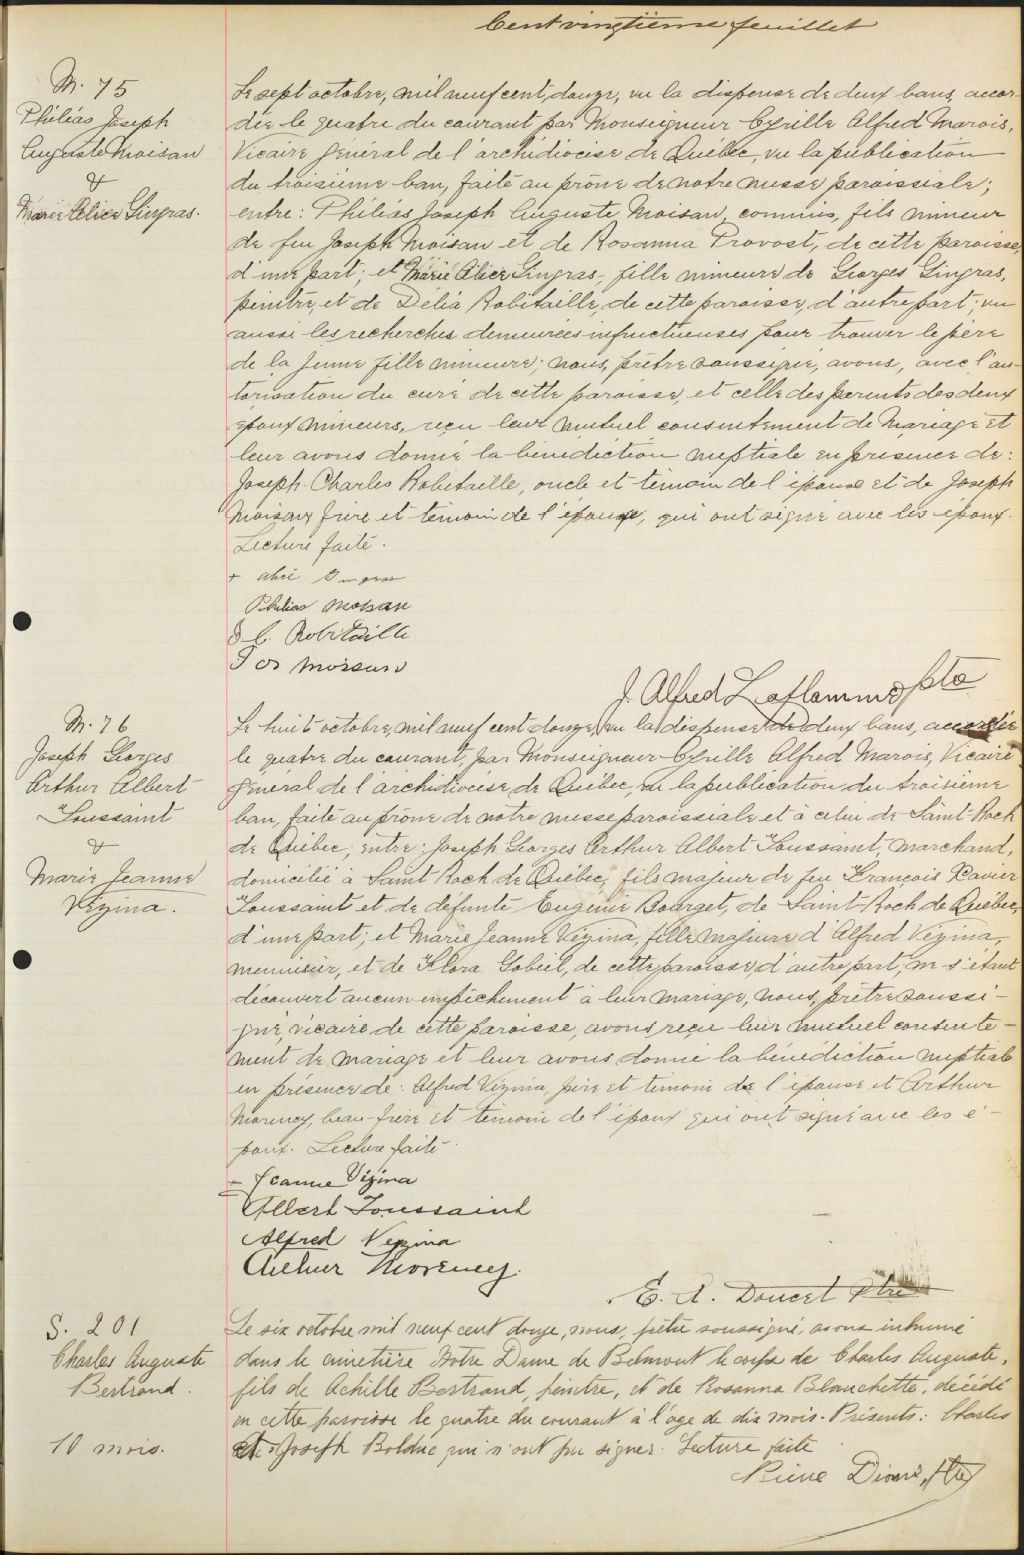 Cent vingtième feuillet
M. 75
Philéas Joseph
Auguste Moisan
&
Marie Alice Gingras.
Le sept octobre, mil neuf cent, douze, vu la dispense de deux bans, accor-
dée le quatre du courant par Monseigneur Cyrille Alfred Marois,
Vicaire Général de l'archidiocèse de Québec, vu la publication
du troisième ban, faite au prône de notre messe paroissiale;
entre: Philéas Joseph Auguste Moisan, commis, fils mineur
de feu Joseph Moisan et de Rosanna Provost, de cette paroisse,
d'une part; et Marie Alice Gingras, fille mineure de Georges Gingras,
peintre, et de Délia Robitaille, de cette paroisse, d'autre part; vu
aussi les recherches demeurées infructueuses pour trouver le père
de la jeune fille mineure; nous, prêtre soussigné, avons, avec l'au-
torisation du curé de cette paroisse, et celle des parents des deux
époux mineurs, reçu leur mutuel consentement de mariage et
leur avons donné la bénédiction nuptiale en présence de:
Joseph-Charles Robitaille, oncle et témoin de l'épouse et de Joseph
Moisan frère et témoin de l'époux, qui ont signé avec les époux.
Lecture faite.
+ alice Gingras
Philias Moisan
J C. Robitaille
Jos Moisan
J. Alfred Laflamme Ptre
M. 76
Joseph Georges
Arthur Albert
Toussaint
&
Marie Jeanne
Vézina.
Le huit octobre, mil neuf cent douze, vu la dispense de deux bans, accordée
le quatre du courant, par Monseigneur Cyrille Alfred Marois, Vicaire
Général de l'archidiocèse de Québec, vu la publication du troisième
ban, faite au prône de notre messe paroissiale et à celui de Saint-Roch
de Québec; entre: Joseph Georges Arthur Albert Toussaint, marchand,
domicilié à Saint Roch de Québec, fils majeur de feu François Xavier
Toussaint et de défunte Eugénie Bourget, de Saint-Roch de Québec,
d'une part; et Marie Jeanne Vézina, fille majeure d'Alfred Vézina,
menuisier, et de Flora Gobeil, de cette paroisse, d'autre part; ne s'étant
découvert aucun empêchement à leur mariage, nous, prêtre soussi-
gné, vicaire de cette paroisse, avons reçu leur mutuel consente-
ment de mariage et leur avons donné la bénédiction nuptiale
en présence de: Alfred Vézina, père et témoin de l'épouse et Arthur
Morency, beau-frère et témoin de l'époux qui ont signé avec les é-
poux. Lecture faite.
Jeanne Vézina
Albert Toussaint
Alfred Vezina
Arthur Morency.
E. A. Doucet Ptre
S. 201
Charles Auguste
Bertrand.
10 mois.
Le six octobre mil neuf cent douze, nous, prêtre soussigné, avons inhumé
dans le cimetière Notre Dame de Belmont le corps de Charles Auguste,
fils de Achille Bertrand, peintre, et de Rosanna Blanchette, décédé
en cette paroisse le quatre du courant à l'age de dix mois. Présents: Charles
et Joseph Bolduc qui n'ont pu signer. Lecture faite.
Dionne, Ptre